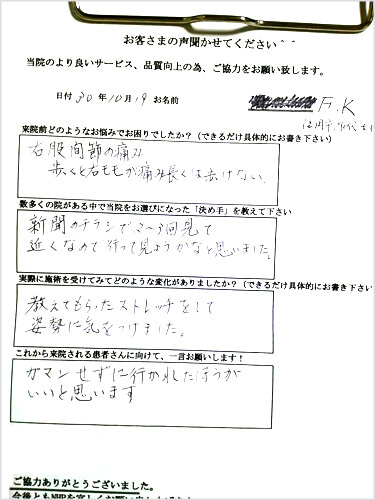 お客さまの声聞かせてください^^
当院のより良いサービス、品質向上の為、ご協力をお願い致します。
日付 30年10月19 お名前 F.K
来院前どのようなお悩みでお困りでしたか？（できるだけ具体的にお書き下さい）
右股間節の痛み
歩くと右モモが痛み長くは歩けない
数多くの院がある中で当院をお選びになった「決め手」を教えて下さい
新聞のチラシで2〜3回見て
近くなので行って見ようかなと思いました。
実際に施術を受けてみてどのような変化がありましたか？（できるだけ具体的にお書き下さい
教えてもらったストレッチをして
姿勢に気をつけました。
これから来院される患者さんに向けて、一言お願いします！
ガマンせずに行かれたほうが
いいと思います
ご協力ありがとうございました。